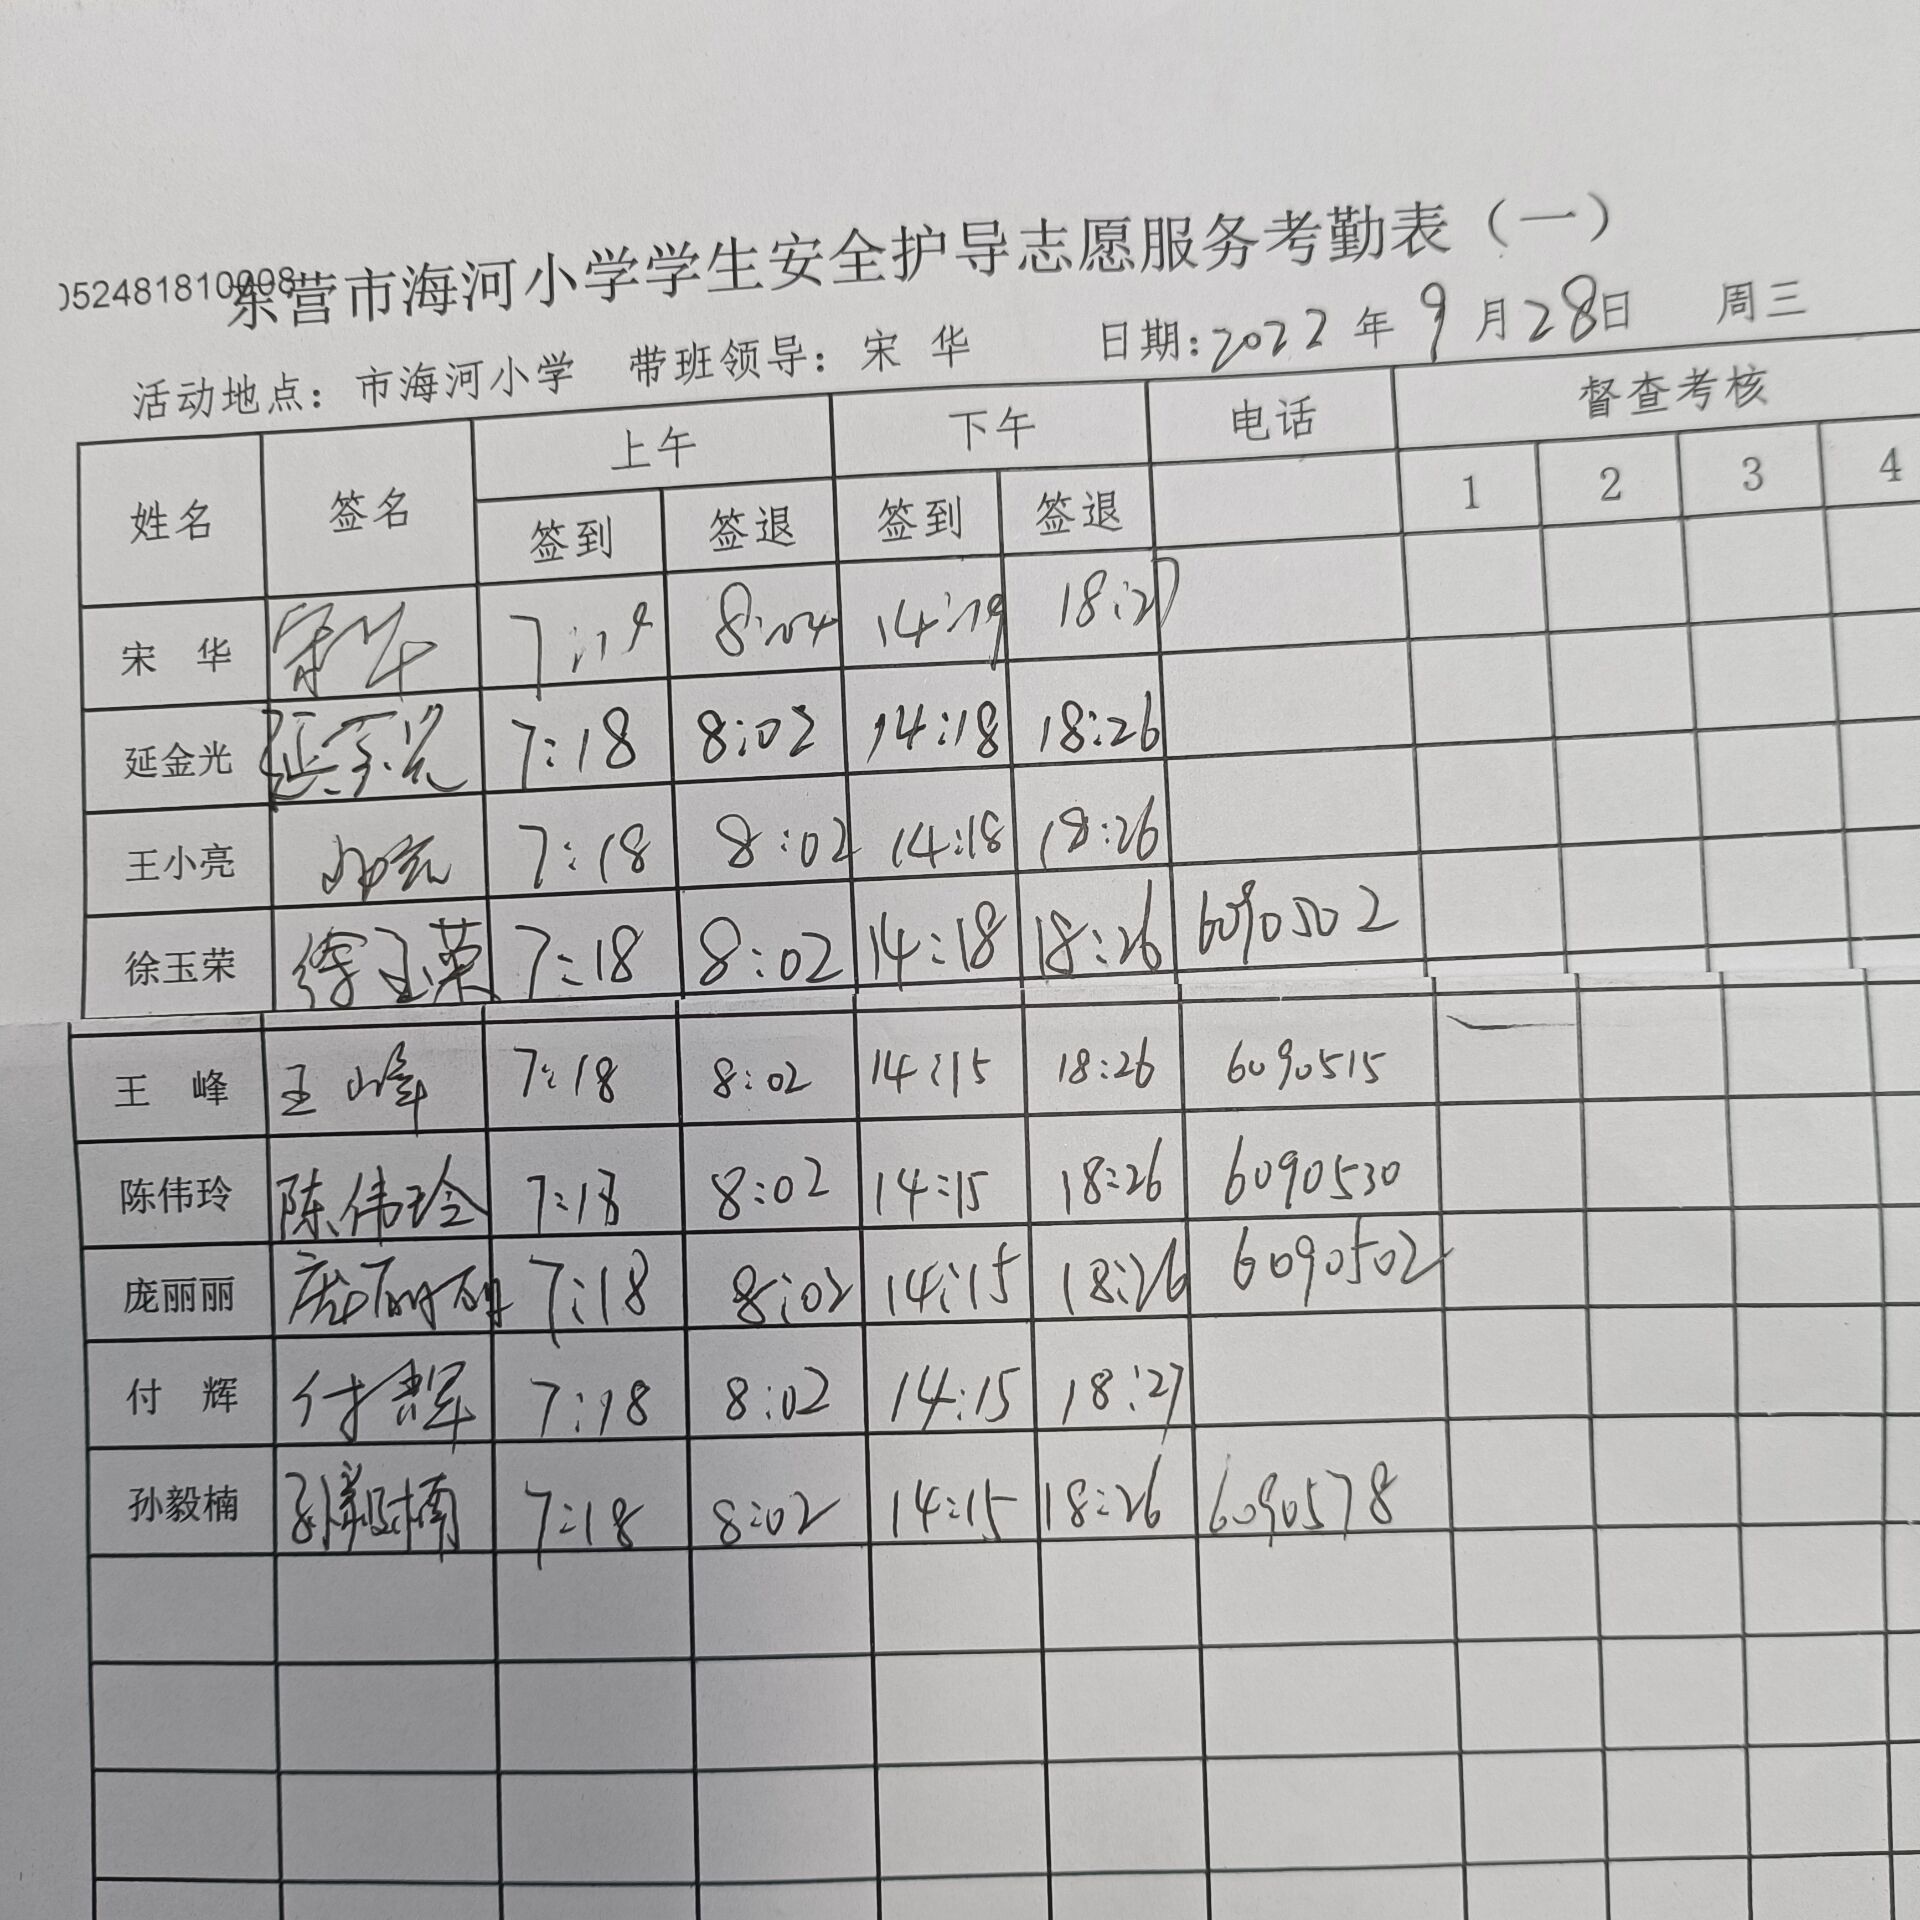 052481810008
东营市海河小学学生安全护导志愿服务考勤表（一）
活动地点：市海河小学 带班领导：宋 华 日期：2022年9月28日 周三
姓名 签名 上午 下午 电话 督查考核
签到 签退 签到 签退 1 2 3 4
宋 华 宋华 8:04 14:19 18:27
延金光 延金光 7:18 8:02 14:18 18:26
王小亮 7:18 8:02 14:18 18:26
徐玉荣 徐玉荣 7:18 8:02 14:18 18:26 6090502
王 峰 王峰 7:18 8:02 14:15 18:26 6090515
陈伟玲 陈伟玲 7:18 8:02 14:15 18:26 6090530
庞丽丽 庞丽丽 7:18 8:02 14:15 18:26 6090502
付 辉 付辉 7:18 8:02 14:15 18:27
孙毅楠 孙毅楠 7:18 8:02 14:15 18:26 6090578